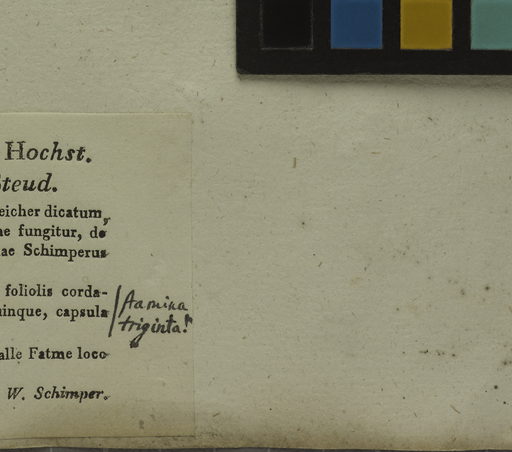 Hochst.
Steud.
eicher dicatum,
ne fungitur, de
ae Schimperus
foliolis corda-
uinque, capsula
Stamina
triginta!
alle Fatme loco
W. Schimper.